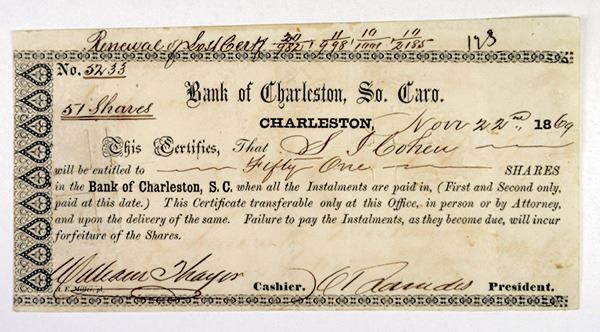 Renewal of Lost Cert 20/982, 11/998, 10/1001, 10/2185 123
No. 5233
Bank of Charleston, So. Caro.
51 Shares
CHARLESTON, Nov 22nd, 1869
This Certifies, That S I Cohen
will be entitled to Fifty One SHARES
in the Bank of Charleston, S. C. when all the Instalments are paid in, (First and Second only,
paid at this date.) This Certificate transferable only at this Office, in person or by Attorney,
and upon the delivery of the same. Failure to pay the Instalments, as they become due, will incur
forfeiture of the Shares.
William Thayer Cashier. President.
A. E. Miller, pr.